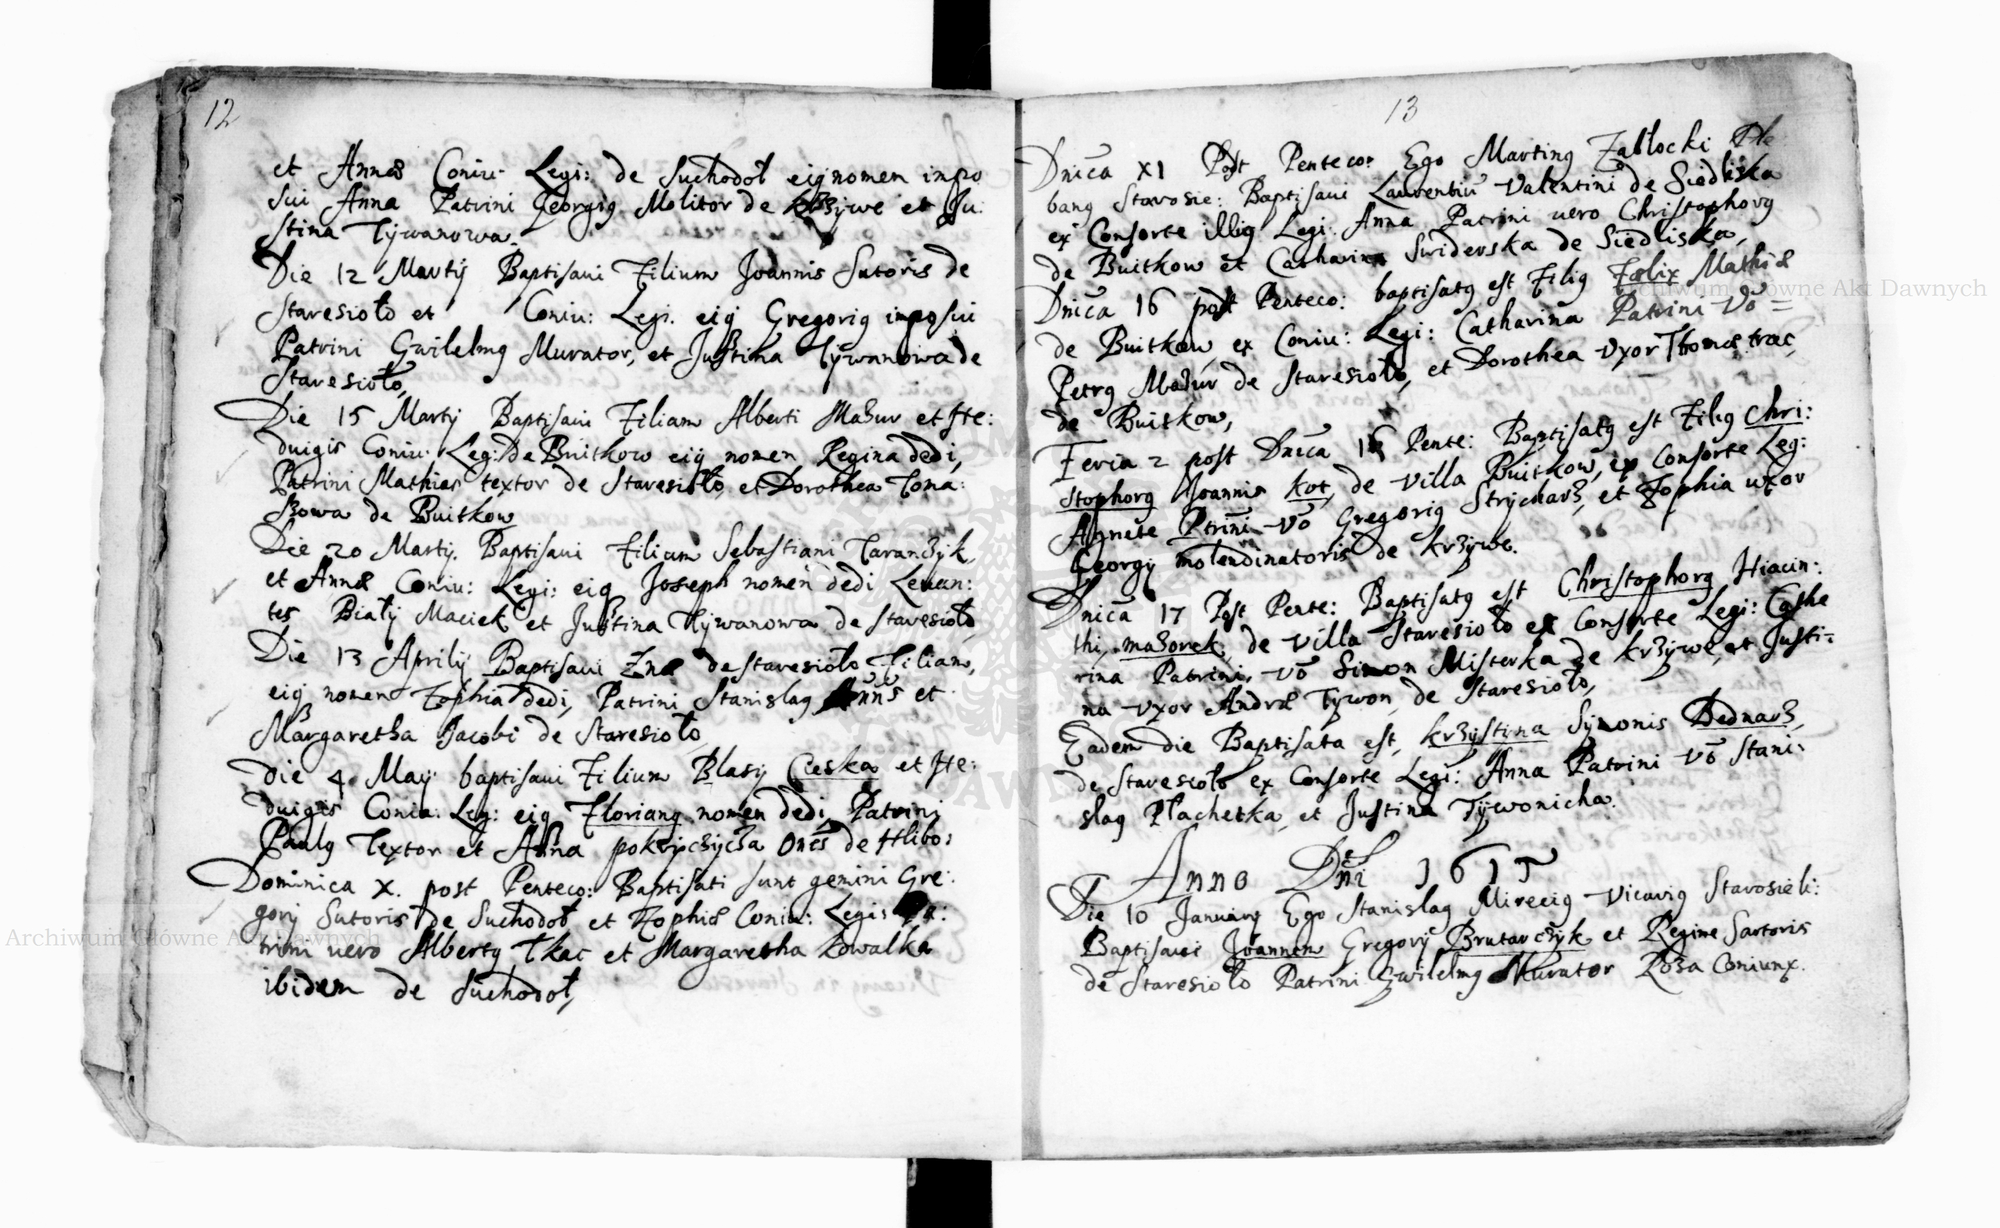 12
et Annæ Coniu: Legi: de Suchodoł eiq nomen impo
sui Anna Patrini Georgiq Molitor de krzÿwe et Ju:
stina Tÿwanowa.
Die 12 Martÿ Baptisaui Filium Joannis Sutoris de
Staresioło et Coniu: Legi. eiq Gregoriq imposui
Patrini Gwilelmq Murator, et Justina Tÿwanowa de
Staresioło,
Die 15 Martÿ Baptisaui Filiam Alberti Mazur et He:
duigis Coniu: Leg: de Buitkow eiq nomen Regina dedi,
Patrini Mathias textor de Staresioło, et Dorothea Toma:
szowa de Buitkow
Die 20 Martÿ. Baptisaui Filium Sebastiani Taranczÿk
et Annæ Coniu: Legi: eiq Joseph nomen dedi Leuan:
tes Białÿ Maciek et Justina Tÿwanowa de staresioło,
Die 13 Aprilÿ Baptisaui de staresioło Filiam,
eiq nomen Zophia dedi, Patrini Stanislaq et
Margaretha Jacobi de Staresioło,
Die 4. Maÿ baptisaui Filium Blasÿ Cieska et He:
duigis Coniu: Leg: eiq Florianq nomen dedi, Patrini
Paulq Textor et Anna Onēs de Hlibo:
Dominica X. post Penteco: Baptisati sunt gemini Gre:
gorÿ Sutoris de Suchodoł et Zophiæ Coniu: Legis Pa:
trini uero Albertq tkac et Margaretha kowalka
ibidem de Suchodoł,
13
Dnīca XI Post Penteco: Ego Martinq Zabłocki Ple
banq Starosie: Baptisaui Laurentiū Valentini de Siedliska
ex Consorte illiq Legi. Anna Patrini uero Christophorq
de Buitkow et Catharina Swiderska de Siedliska,
Dnīca 16 post Penteco: baptisatq est Filiq Fælix Mathiæ
de Buitkow ex Coniu: Legi: Catharina Patrini Vō =
Petrq Mazur de Staresioło, et Dorothea Vxor Thomæ trac,
de Buitkow,
Feria 2 post Dnīca 16 Pente: Baptisatq est Filiq Chri:
stophorq Joannis kot, de Villa Buitkow, ex Consorte Leg:
Agnete Ptrini Vō Gregoriq Strÿcharz, et Zophia uxor
Georgÿ molendinatoris de krzÿwe.
Dnīca 17 Post Pente: Baptisatq est Christophorq Hiacin:
thi, mazorek, de Villa Staresioło ex Consorte Legi: Cathe
rina Patrini, Vō Simon Misterka de krzÿwe, et Justi=
na Vxor Andræ Tÿwon, de Staresioło,
Eadem die Baptisata est, krzÿstina Sÿmonis Bednarz,
de Staresioło ex Consorte Legi: Anna Patrini Vō Stani:
slaq Płachetka, et Justina Tÿwonicha.
Anno Dnī 1615
Die 10 Januarq Ego Stanislaq Mireciq Vicariq Starosieli:
Baptisaui Joannem Gregorÿ Brutarczÿk et Reginæ Sartoris
de Staresioło Patrini Gwilelmq Murator Roza Coniunx.
Archiwum Główne Akt Dawnych
Archiwum Główne Akt Dawnych